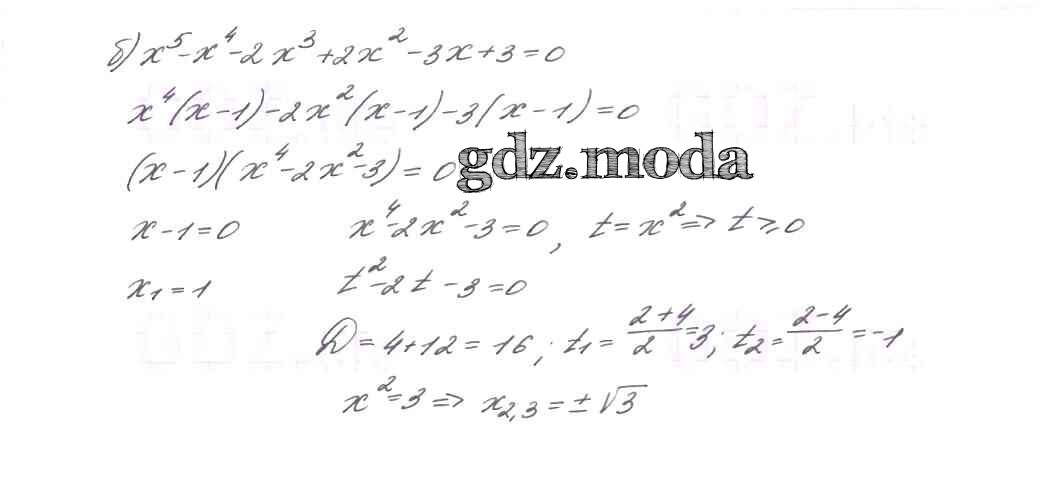 б) x⁵-x⁴-2x³+2x²-3x+3=0
x⁴(x-1)-2x²(x-1)-3(x-1)=0
(x-1)(x⁴-2x²-3)=0 gdz.moda
x-1=0 x⁴-2x²-3=0, t=x²=> t⩾0
x₁=1 t²-2t-3=0
D=4+12=16; t₁=(2+4)/2=3; t₂=(2-4)/2=-1
x²=3=> x₂,₃=±√3